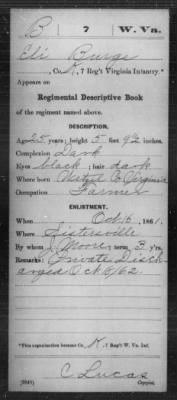 B 7 W. Va.
Eli Burge
, Co. , 7 Reg't Virginia Infantry.*
Appears on
Regimental Descriptive Book
of the regiment named above.
DESCRIPTION.
Age 25 years; height 5 feet 9½ inches.
Complexion Dark
Eyes black; hair dark
Where born Wetzel Co Virginia
Occupation Farmer
ENLISTMENT.
When Oct 6, 1861.
Where Sistersville
By whom J Moore; term 3 y'rs.
Remarks: Private Disch
arged Oct 9/62.
*This organization became Co. K, 7 Reg't W. Va. Inf.
C Lucas
Copyist.